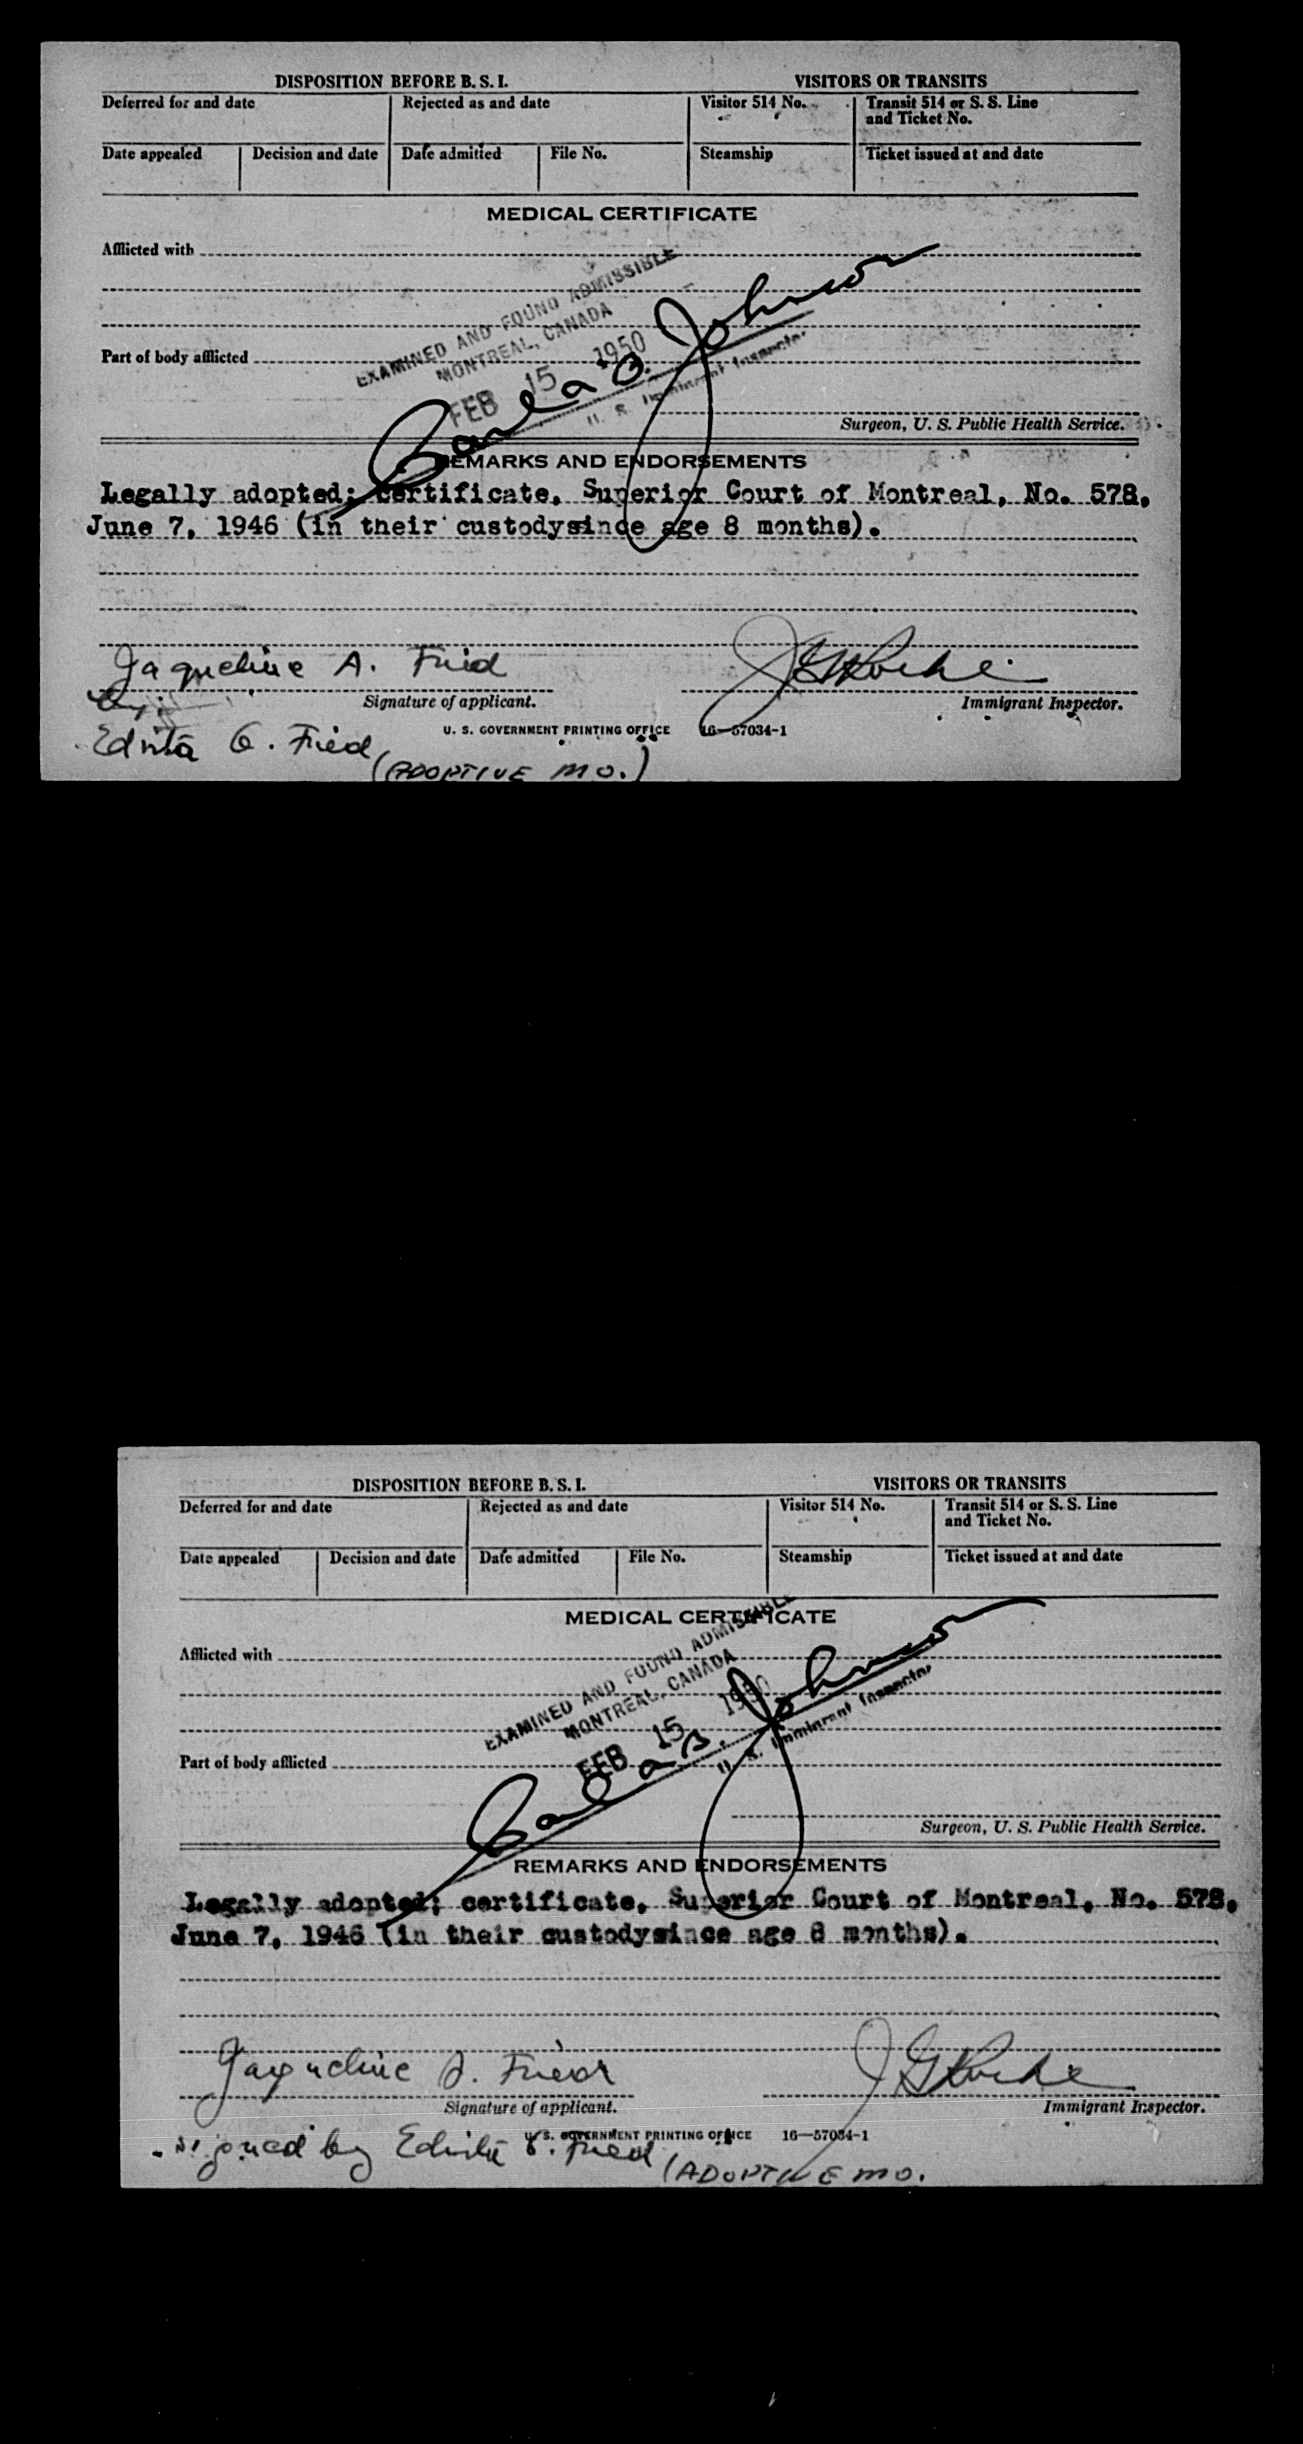 DISPOSITION BEFORE B. S. I. VISITORS OR TRANSITS
Deferred for and date Rejected as and date Visitor 514 No. Transit 514 or S. S. Line
and Ticket No.
Date appealed Decision and date Date admitted File No. Steamship Ticket issued at and date
MEDICAL CERTIFICATE
Afflicted with
EXAMINED AND FOUND ADMISSIBLE
MONTREAL, CANADA
FEB 15 1950
Johnson
U. S. Immigrant Inspector
Part of body afflicted
Surgeon, U. S. Public Health Service.
REMARKS AND ENDORSEMENTS
Legally adopted; certificate, Superior Court of Montreal, No. 578,
June 7, 1946 (in their custodysince age 8 months).
Jaqueline A. Fried
Signature of applicant. Immigrant Inspector.
by:
U. S. GOVERNMENT PRINTING OFFICE 16—57034-1
Edwita G. Fried
(ADOPTIVE MO.)
DISPOSITION BEFORE B. S. I. VISITORS OR TRANSITS
Deferred for and date Rejected as and date Visitor 514 No. Transit 514 or S. S. Line
and Ticket No.
Date appealed Decision and date Date admitted File No. Steamship Ticket issued at and date
MEDICAL CERTIFICATE
Afflicted with
EXAMINED AND FOUND ADMISSIBLE
MONTREAL, CANADA
FEB 15 1950
Johnson
U. S. Immigrant Inspector
Part of body afflicted
Surgeon, U. S. Public Health Service.
REMARKS AND ENDORSEMENTS
Legally adopted; certificate, Superior Court of Montreal, No. 578,
June 7, 1946 (in their custodysince age 8 months).
Jaqueline A. Fried
Signature of applicant. Immigrant Inspector.
U. S. GOVERNMENT PRINTING OFFICE 16—57034-1
signed by Edwita G. Fried
(ADOPTIVE MO.